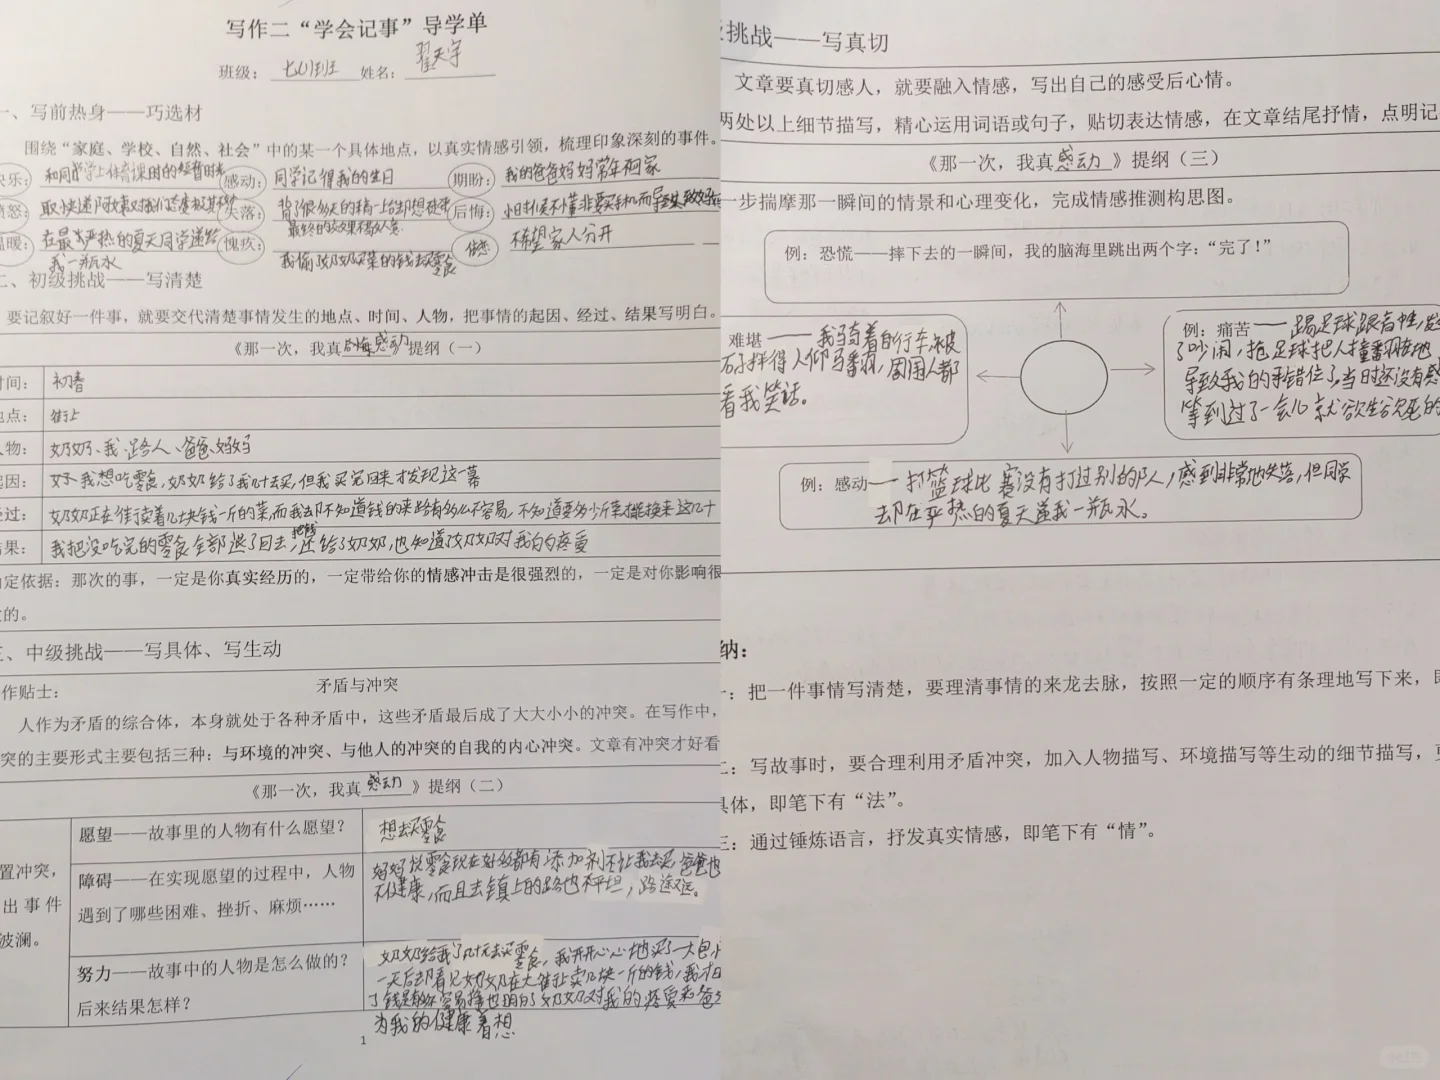 写作二“学会记事”导学单
班级： 七01班 姓名： 翟天宇
一、写前热身——巧选材
围绕“家庭、学校、自然、社会”中的某一个具体地点，以真实情感引领，梳理印象深刻的事件。
乐： 和同学上体育课时的 感动： 同学记得我的生日 期盼： 我的爸爸妈妈常年在家
怒： 取快递 失落： 背了很多天的稿 后悔： 小时候不懂非要买手机而导致
最终的效果不尽人意
暖： 在最炎热的夏天同学递给 愧疚： 我偷奶奶买菜的钱去买零食 不希望家人分开
我一瓶水
二、初级挑战——写清楚
要记叙好一件事，就要交代清楚事情发生的地点、时间、人物，把事情的起因、经过、结果写明白。
《那一次，我真感动提纲（一）
时间： 初春
地点： 街上
人物： 奶奶、我、路人、爸爸、妈妈
起因： 我想吃零食，奶奶给了我几十去买，但我买完回来才发现这一幕
经过： 奶奶正在街卖着几块钱一斤的菜，而我却不知道钱的来路有多么不容易，不知道要多少斤菜才能换来这几十
结果： 我把没吃完的零食全部退了回去，把钱还给了奶奶，也知道了奶奶对我的疼爱
定依据：那次的事，一定是你真实经历的，一定带给你的情感冲击是很强烈的，一定是对你影响很
的。
三、中级挑战——写具体、写生动
作贴士： 矛盾与冲突
人作为矛盾的综合体，本身就处于各种矛盾中，这些矛盾最后成了大大小小的冲突。在写作中，
突的主要形式主要包括三种：与环境的冲突、与他人的冲突的自我的内心冲突。文章有冲突才好看
《那一次，我真感动》提纲（二）
置冲突，
出事件
波澜。
愿望——故事里的人物有什么愿望？ 想去买零食
障碍——在实现愿望的过程中，人物
遇到了哪些困难、挫折、麻烦……
妈妈说零食现在好多都有添加剂不让我去买，爸爸也
不健康，而且去镇上的路也不平坦，路途又远。
努力——故事中的人物是怎么做的？
后来结果怎样？
奶奶给我了几十元去买零食，我开开心心地买了一大包
一天后却看见奶奶在大街上卖几块一斤的钱，我才
了钱是多么不容易挣也明白了奶奶对我的疼爱和爸
为我的健康着想
1
挑战——写真切
文章要真切感人，就要融入情感，写出自己的感受后心情。
两处以上细节描写，精心运用词语或句子，贴切表达情感，在文章结尾抒情，点明记
《那一次，我真感动》提纲（三）
一步揣摩那一瞬间的情景和心理变化，完成情感推测构思图。
例：恐慌——摔下去的一瞬间，我的脑海里跳出两个字：“完了！”
难堪——我骑着自行车被
石子拌得人仰马番羽，周围人都
看我笑话。
例：痛苦——踢足球跟高中生
了吵闹，抢足球把人撞番羽在地
导致我的手错位了，当时还没有感
等到过了一会儿就欲生欲死的
例：感动——打篮球比赛没有打过别的队人，感到非常地失落，但同学
却在严热的夏天送我一瓶水。
纳：
：把一件事情写清楚，要理清事情的来龙去脉，按照一定的顺序有条理地写下来，
二：写故事时，要合理利用矛盾冲突，加入人物描写、环境描写等生动的细节描写，
具体，即笔下有“法”。
三：通过锤炼语言，抒发真实情感，即笔下有“情”。